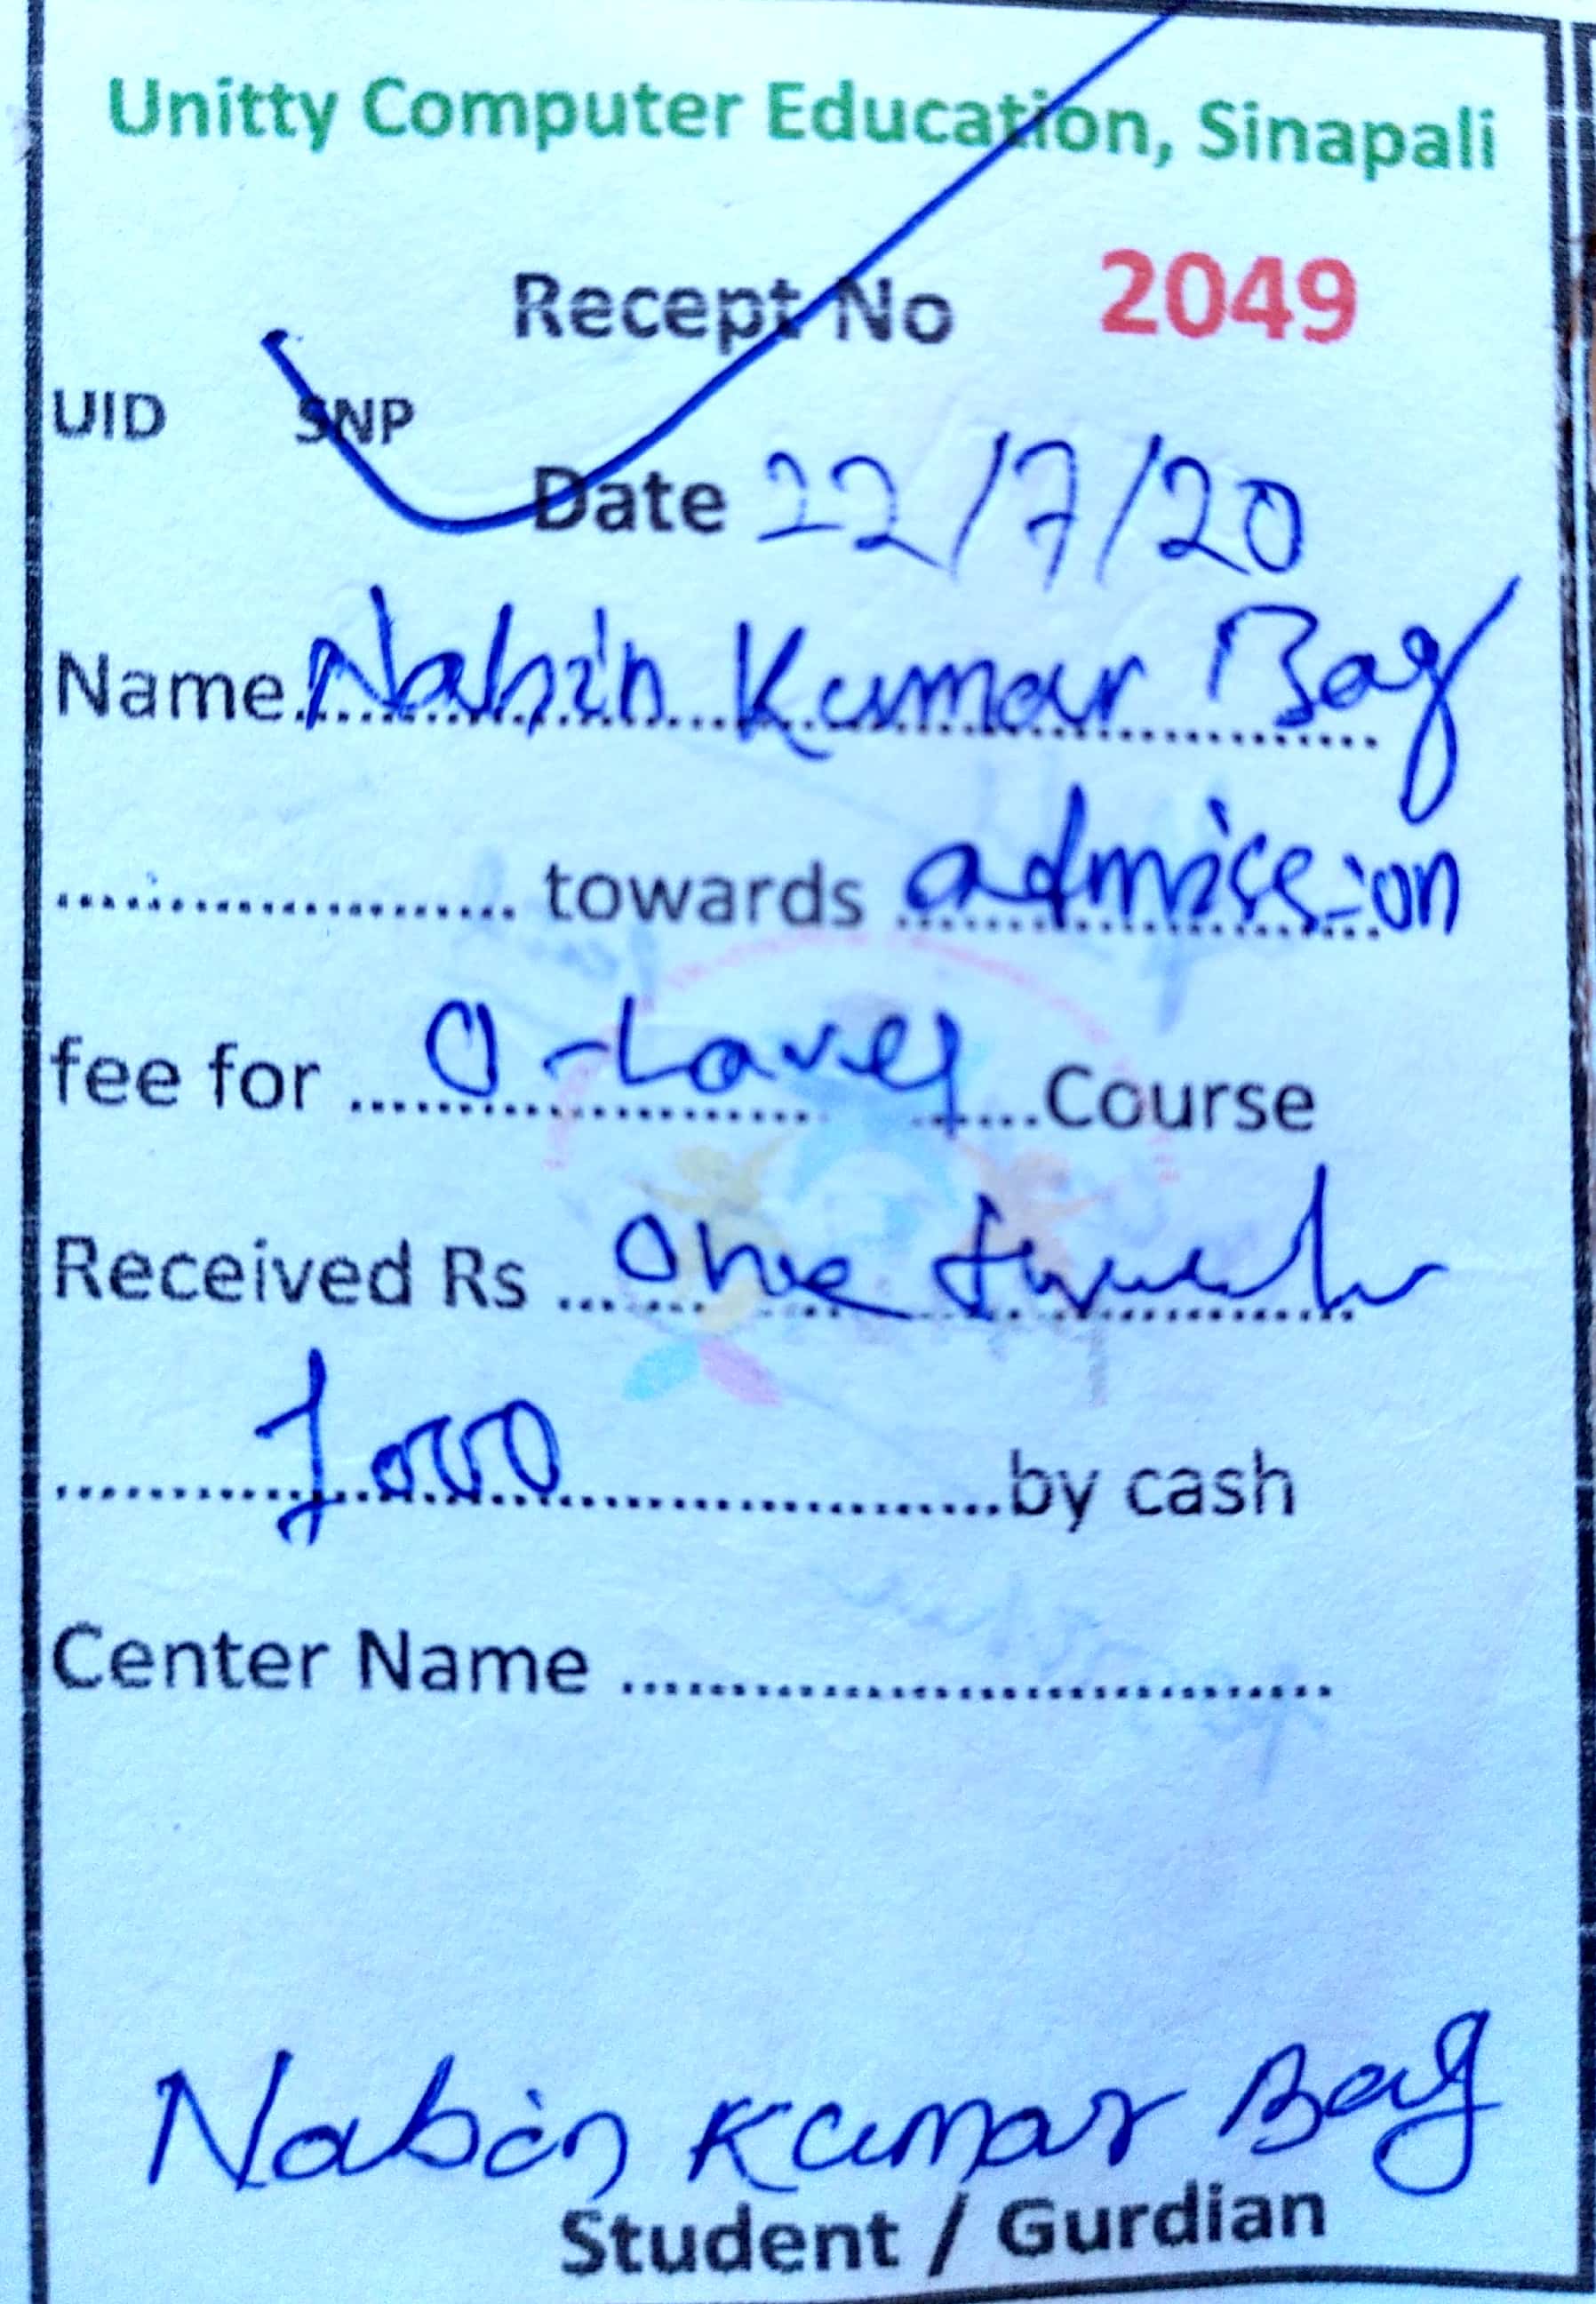 Unitty Computer Education, Sinapali
Recept No 2049
UID SNP
Date 22/7/20
Name Nabin Kumar Bag
.................... towards admission
fee for O-Lavel Course
Received Rs One
1000 by cash
Center Name ..............................
Nabin Kumar Bag
Student / Gurdian